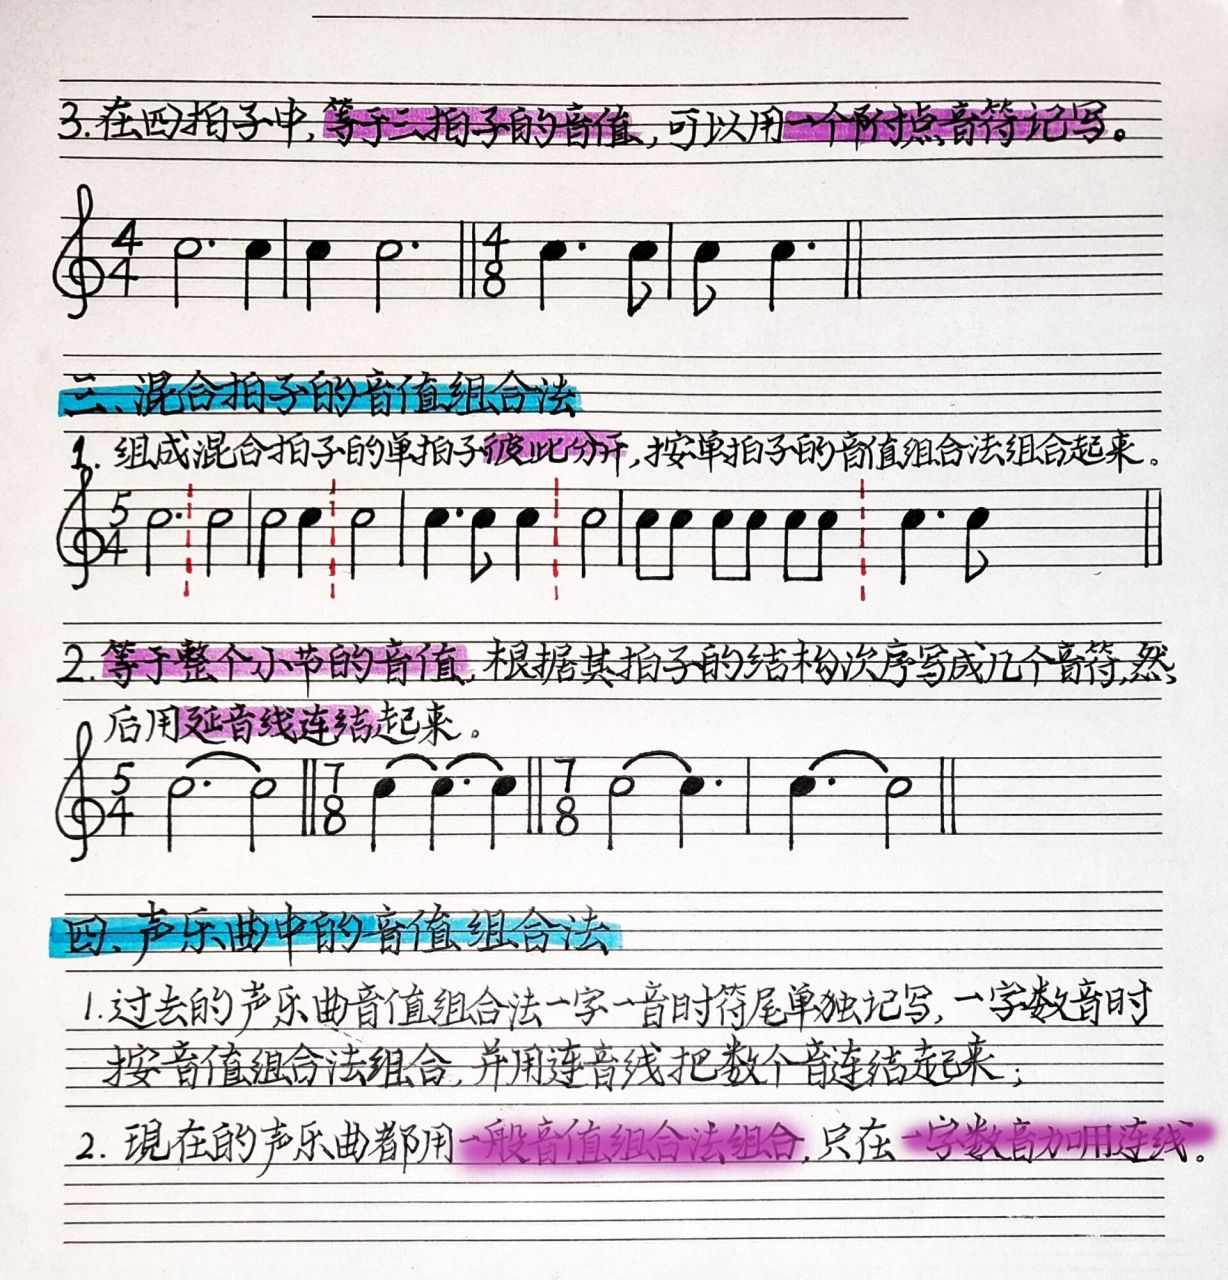 3.在四拍子中,等于三拍子的音值,可以用一个附点音符记写。
4 4 4 8
三、混合拍子的音值组合法
1. 组成混合拍子的单拍子彼此分开,按单拍子的音值组合法组合起来。
5 4
2.等于整个小节的音值,根据其拍子的结构次序写成几个音符,然
后用延音线连结起来。
5 4 7 8 7 8
四、声乐曲中的音值组合法
1.过去的声乐曲音值组合法一字一音时符尾单独记写,一字数音时
按音值组合法组合,并用连音线把数个音连结起来;
2. 现在的声乐曲都用一般音值组合法组合,只在一字数音加用连线。